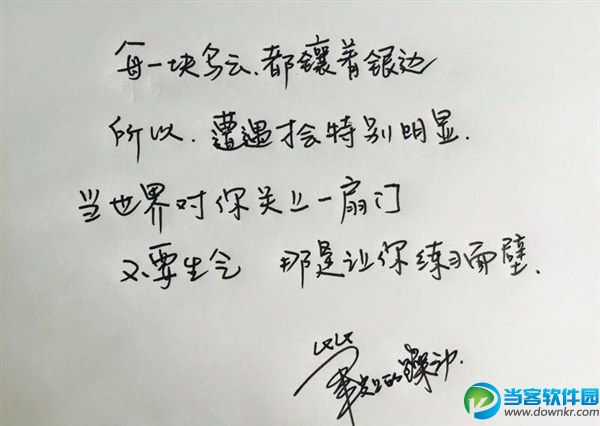 每一块乌云、都镶着银边
所以、遭遇才会特别明显.
当世界对你关上一扇门
不要生气 那是让你练习面壁.
当客软件园
www.downkr.com